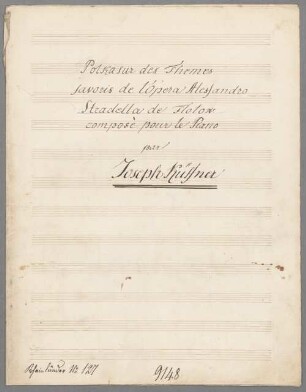 Polka sur des Themes
favoris de l'ópera Alessandro
Stradella de Flotow
composè pour le Piano
par
Joseph Küffner
No 127
9148